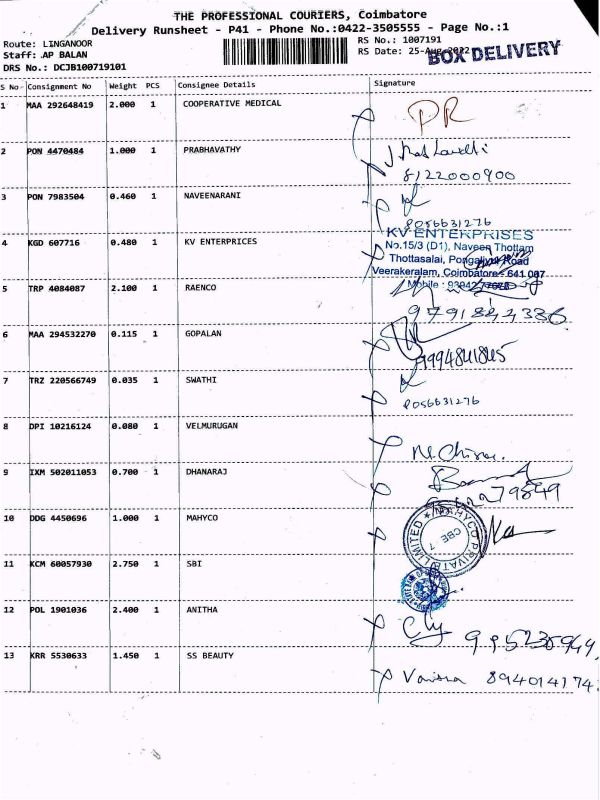 THE PROFESSIONAL COURIERS, Coimbatore
Delivery Runsheet - P41 - Phone No.:0422-3505555 - Page No.:1
Route: LINGANOOR RS No.: 1007191
Staff: AP BALAN RS Date: 25-Aug-2022 BOX DELIVERY
DRS No.: DCJB100719101
S No Consignment No Weight PCS Consignee Details Signature
1 MAA 292648419 2.000 1 COOPERATIVE MEDICAL PR
2 PON 4470484 1.000 1 PRABHAVATHY
8122000900
3 PON 7983504 0.460 1 NAVEENARANI
8056631276
4 KGD 607716 0.480 1 KV ENTERPRICES
KV ENTERPRISES
No.15/3 (D1), Naveen Thottam
Thottasalai, Pongaliyur Road
Veerakeralam, Coimbatore - 641 007
Mobile :
5 TRP 4084087 2.100 1 RAENCO
9791844336
6 MAA 294532270 0.115 1 GOPALAN
9994841845
7 TRZ 220566749 0.035 1 SWATHI
8056631276
8 DPI 10216124 0.080 1 VELMURUGAN
9 IXM 502011053 0.700 1 DHANARAJ
10 DDG 4450696 1.000 1 MAHYCO
MAHYCO PRIVATE LIMITED
CBE 7
11 KCM 60057930 2.750 1 SBI
12 POL 1901036 2.400 1 ANITHA
13 KRR 5530633 1.450 1 SS BEAUTY
8940141742